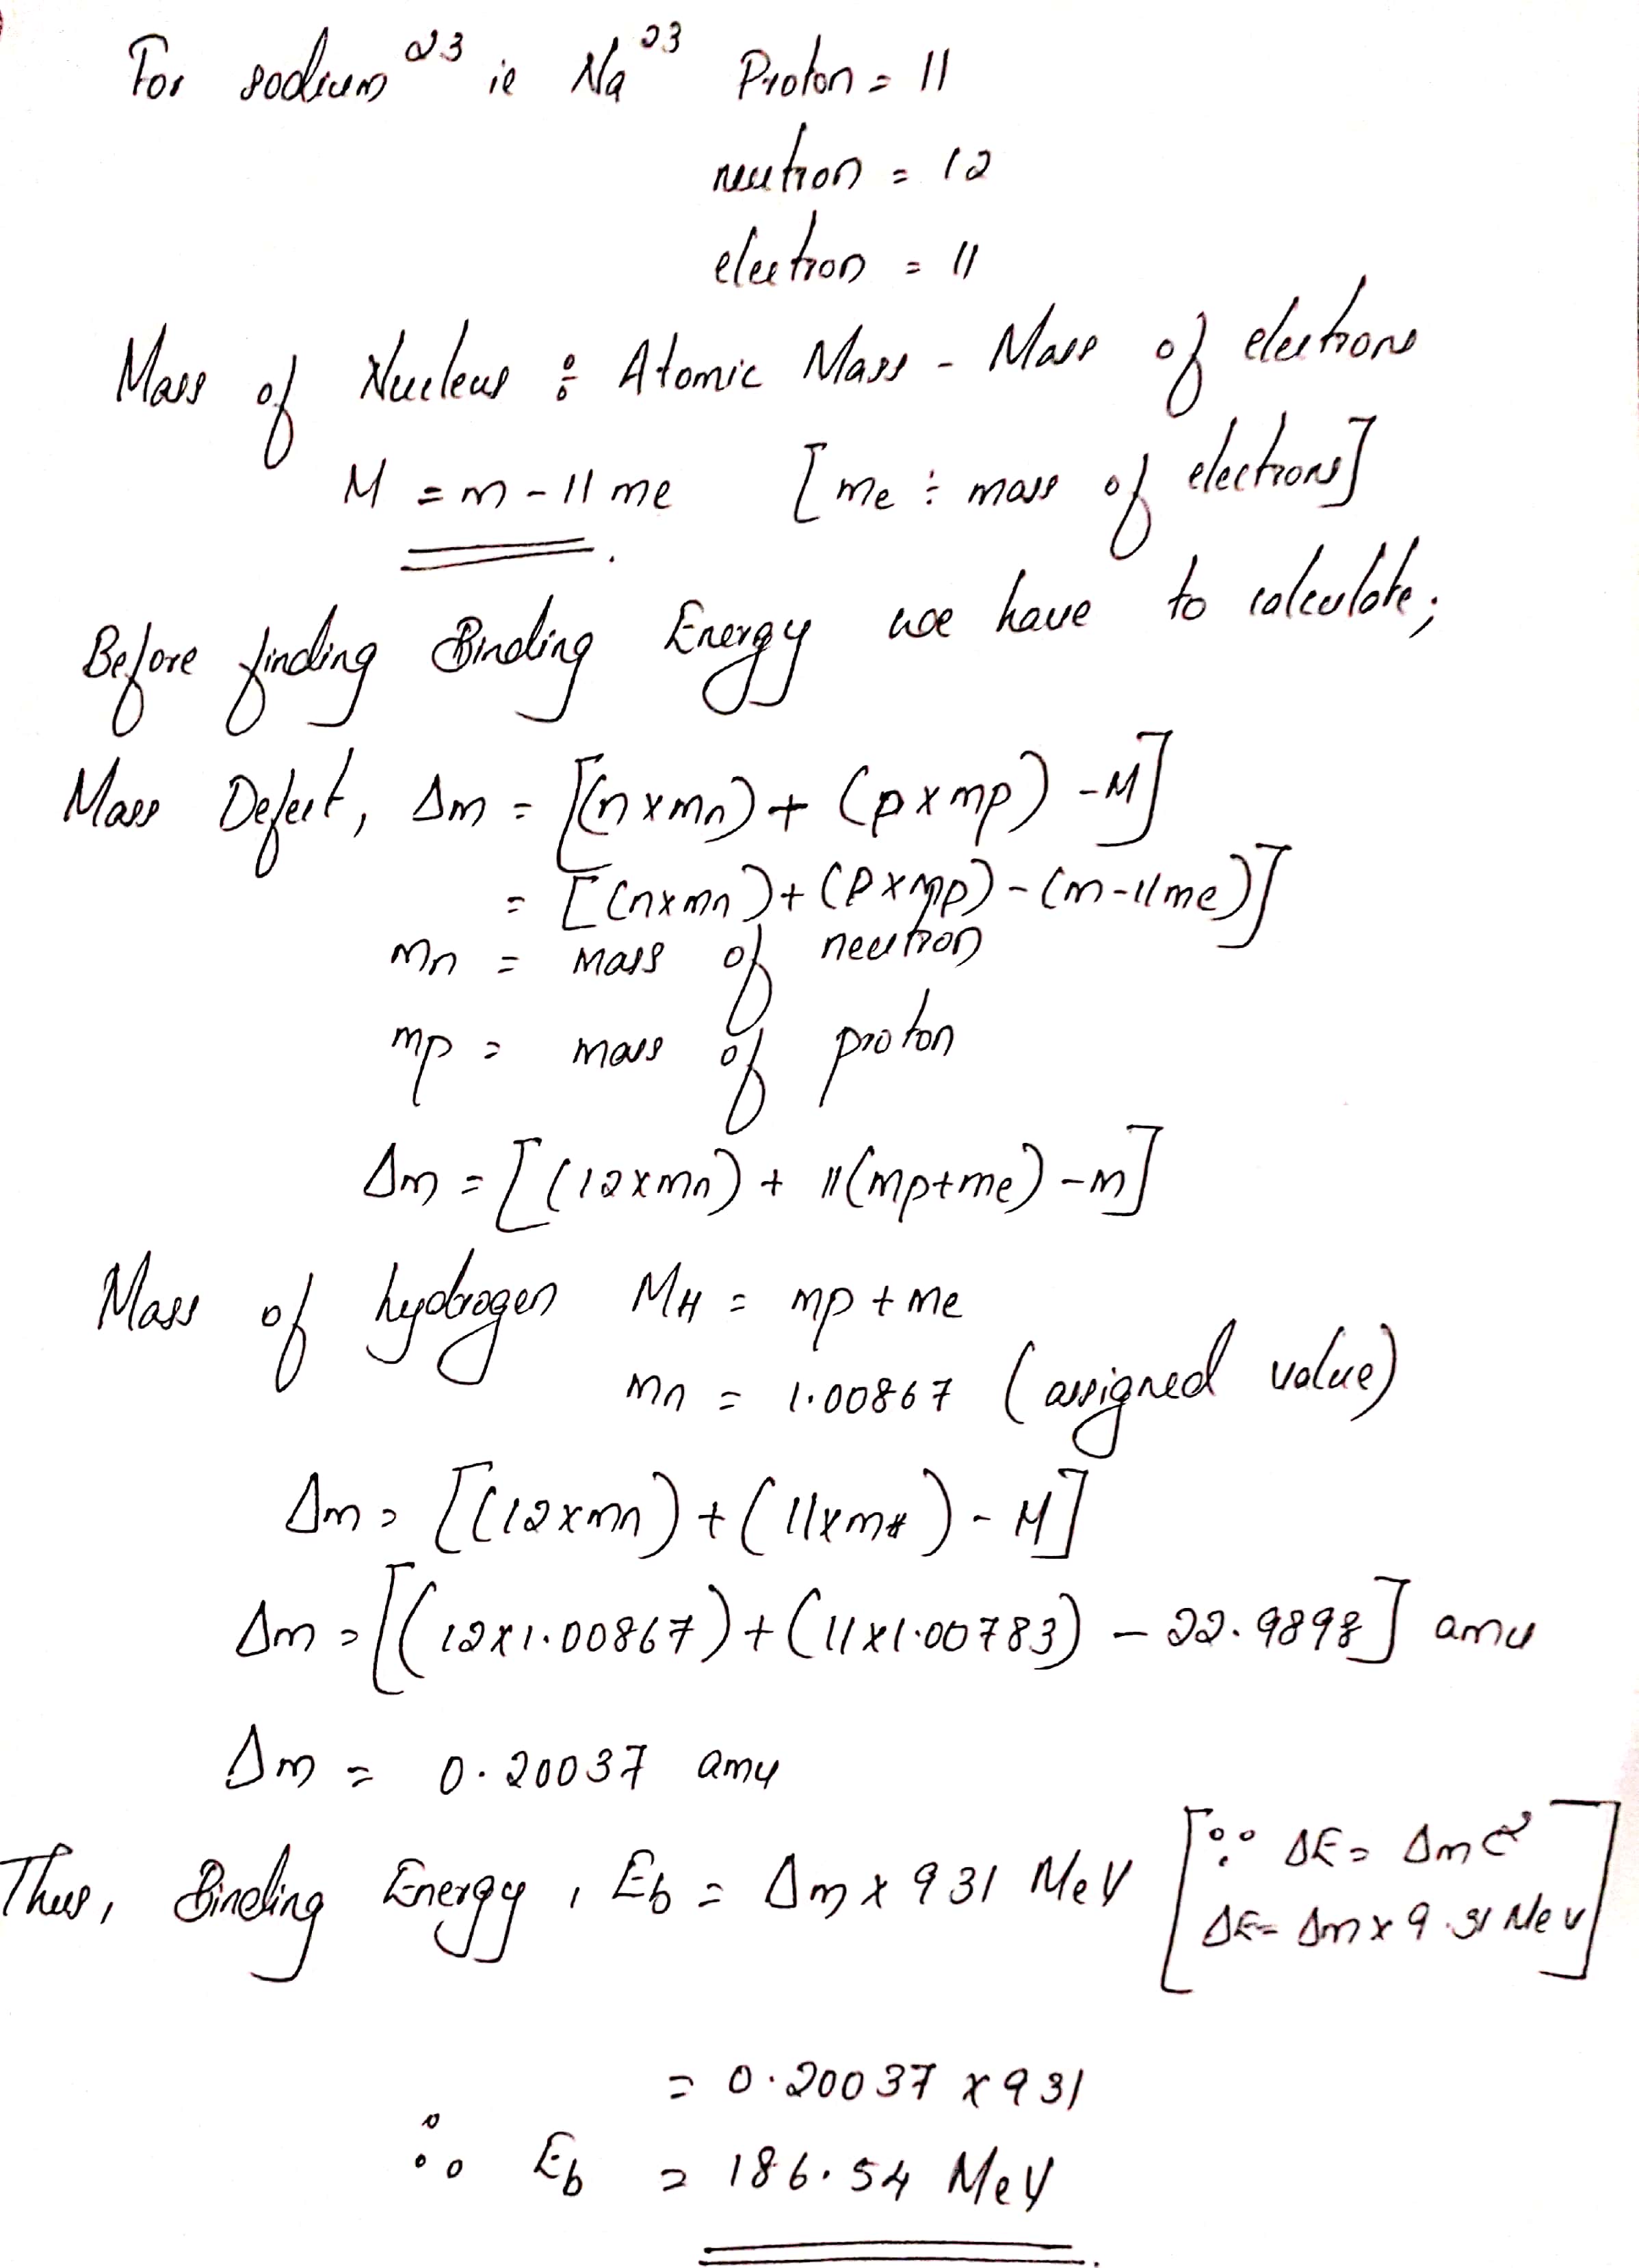 For sodium²³ ie Na²³ Proton = 11
neutron = 12
electron = 11
Mass of Nucleus ÷ Atomic Mass - Mass of electrons
M = m - 11 me [me ÷ mass of electrons]
Before finding Binding Energy we have to calculate;
Mass Defect, Δm = [(n x mn) + (p x mp) - M]
= [(n x mn) + (P x mp) - (m - 11me)]
mn = mass of neutron
mp = mass of proton
Δm = [(12 x mn) + 11(mp + me) - m]
Mass of hydrogen MH = mp + me
mn = 1.00867 (assigned value)
Δm = [(12 x mn) + (11 x mH) - M]
Δm = [(12 x 1.00867) + (11 x 1.00783) - 22.9898] amu
Δm = 0.20037 amu
Thus, Binding Energy, Eb = Δm x 931 MeV [∵ ΔE = Δmc²
ΔE = Δm x 9.31 MeV]
= 0.20037 x 931
∴ Eb = 186.54 MeV